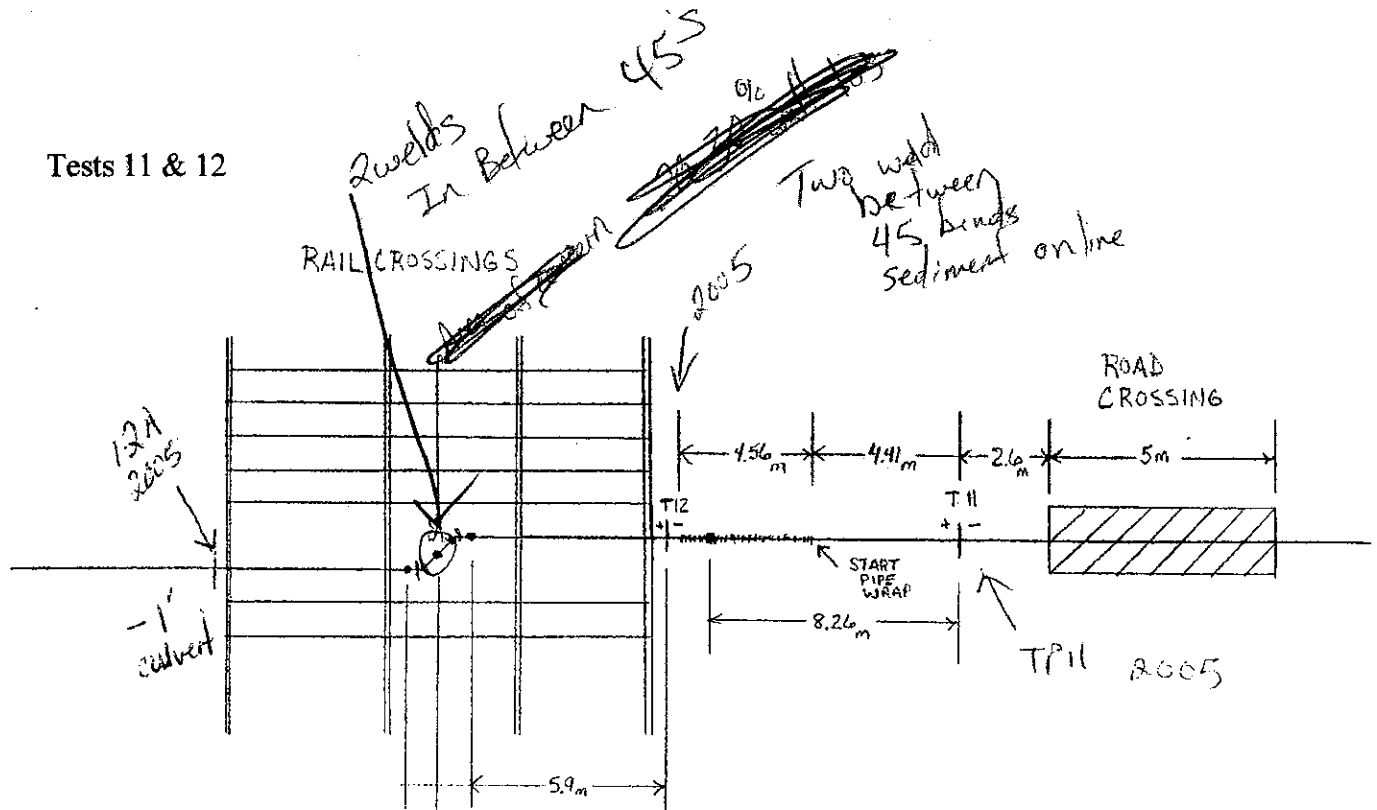 Tests 11 & 12
2 welds
In Between 45's
Two weld
between
45 bends
sediment on line
RAIL CROSSINGS
2005
ROAD
CROSSING
12A
2005
4.56m
4.41m
2.6m
5m
T12
+ -
T11
+ -
START
PIPE
WRAP
8.26m
-1'
culvert
TP11 2005
5.9m